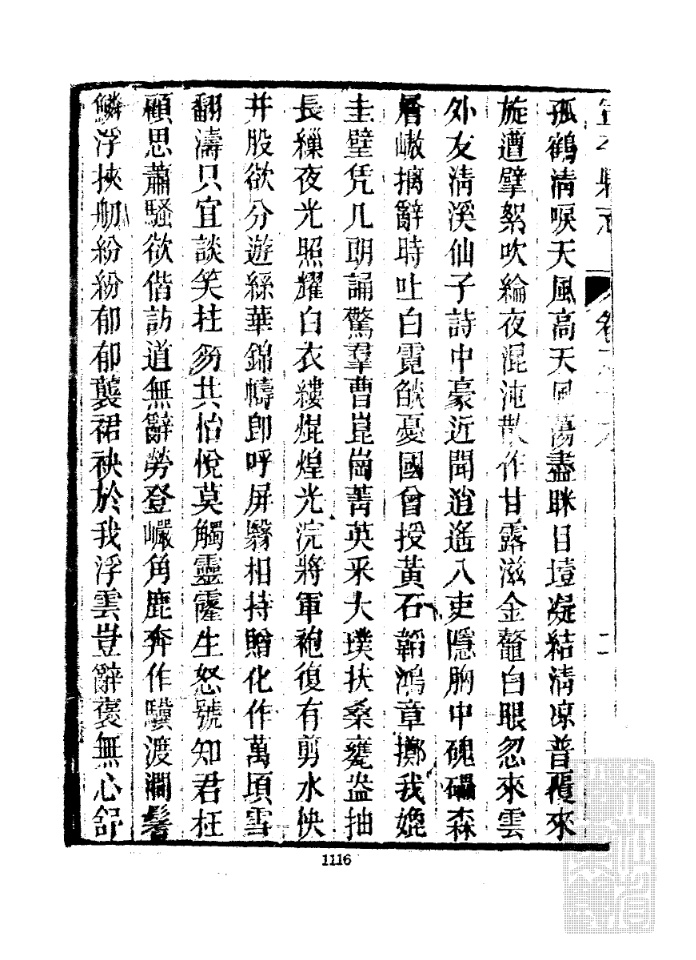 縣志 卷
孤鶴清唳天風高天風蕩盡眯目壒凝結清凉普覆來
旋遭擘絮吹綸夜混沌散作甘露滋金鼇白眼忽來雲
外友清溪仙子詩中豪近聞逍遙入吏隱胸中磈礧森
層嶔摛辭時吐白霓皷憂國曾授黃石韜鴻章擲我媲
圭璧凭几朗誦驚羣曹崑崗菁英釆大璞扶桑甕盎抽
長繅夜光照耀白衣縷焜煌光浣將軍袍復有剪水快
并股欲分遊絲華錦幬卽呼屏翳相持贈化作萬頃雪
翻濤只宜談笑拄笏共怡悅莫觸靈霳生怒號知君枉
顧思蕭騷欲偕訪道無辭勞登巘角鹿奔作驥渡澗髯
鱗浮挾舠紛紛郁郁襲裙袂於我浮雲豈辭褒無心舒
1116